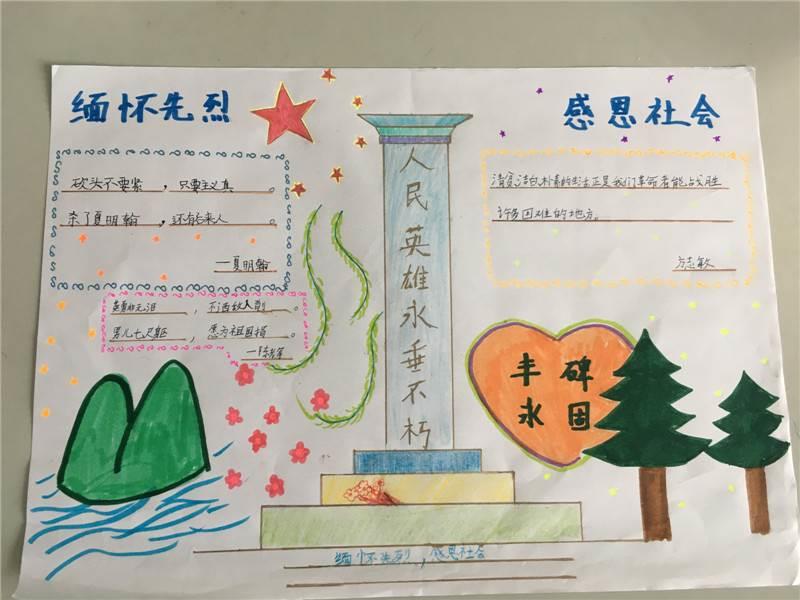 缅怀先烈
感恩社会
砍头不要紧 ，只要主义真。
杀了夏明翰 ，还 来人。
—夏明翰
英雄非无泪 ，不洒敌人前。
男儿七尺躯 ，愿为祖国捐。
—陈辉
人民英雄永垂不朽
清贫洁白朴素的生活正是我们革命者能战胜
许多困难的地方。
方志敏
丰碑
永固
缅怀先烈，感恩社会